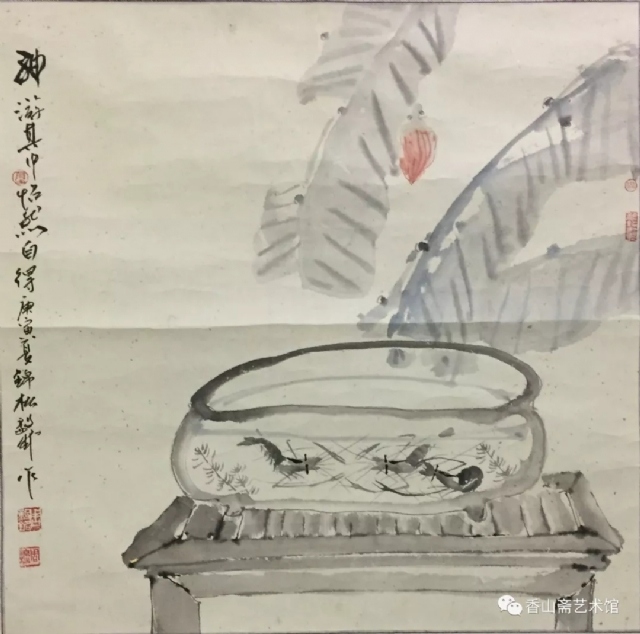 神游其中怡然自得庚寅夏锦松敬作
香山斋艺术馆